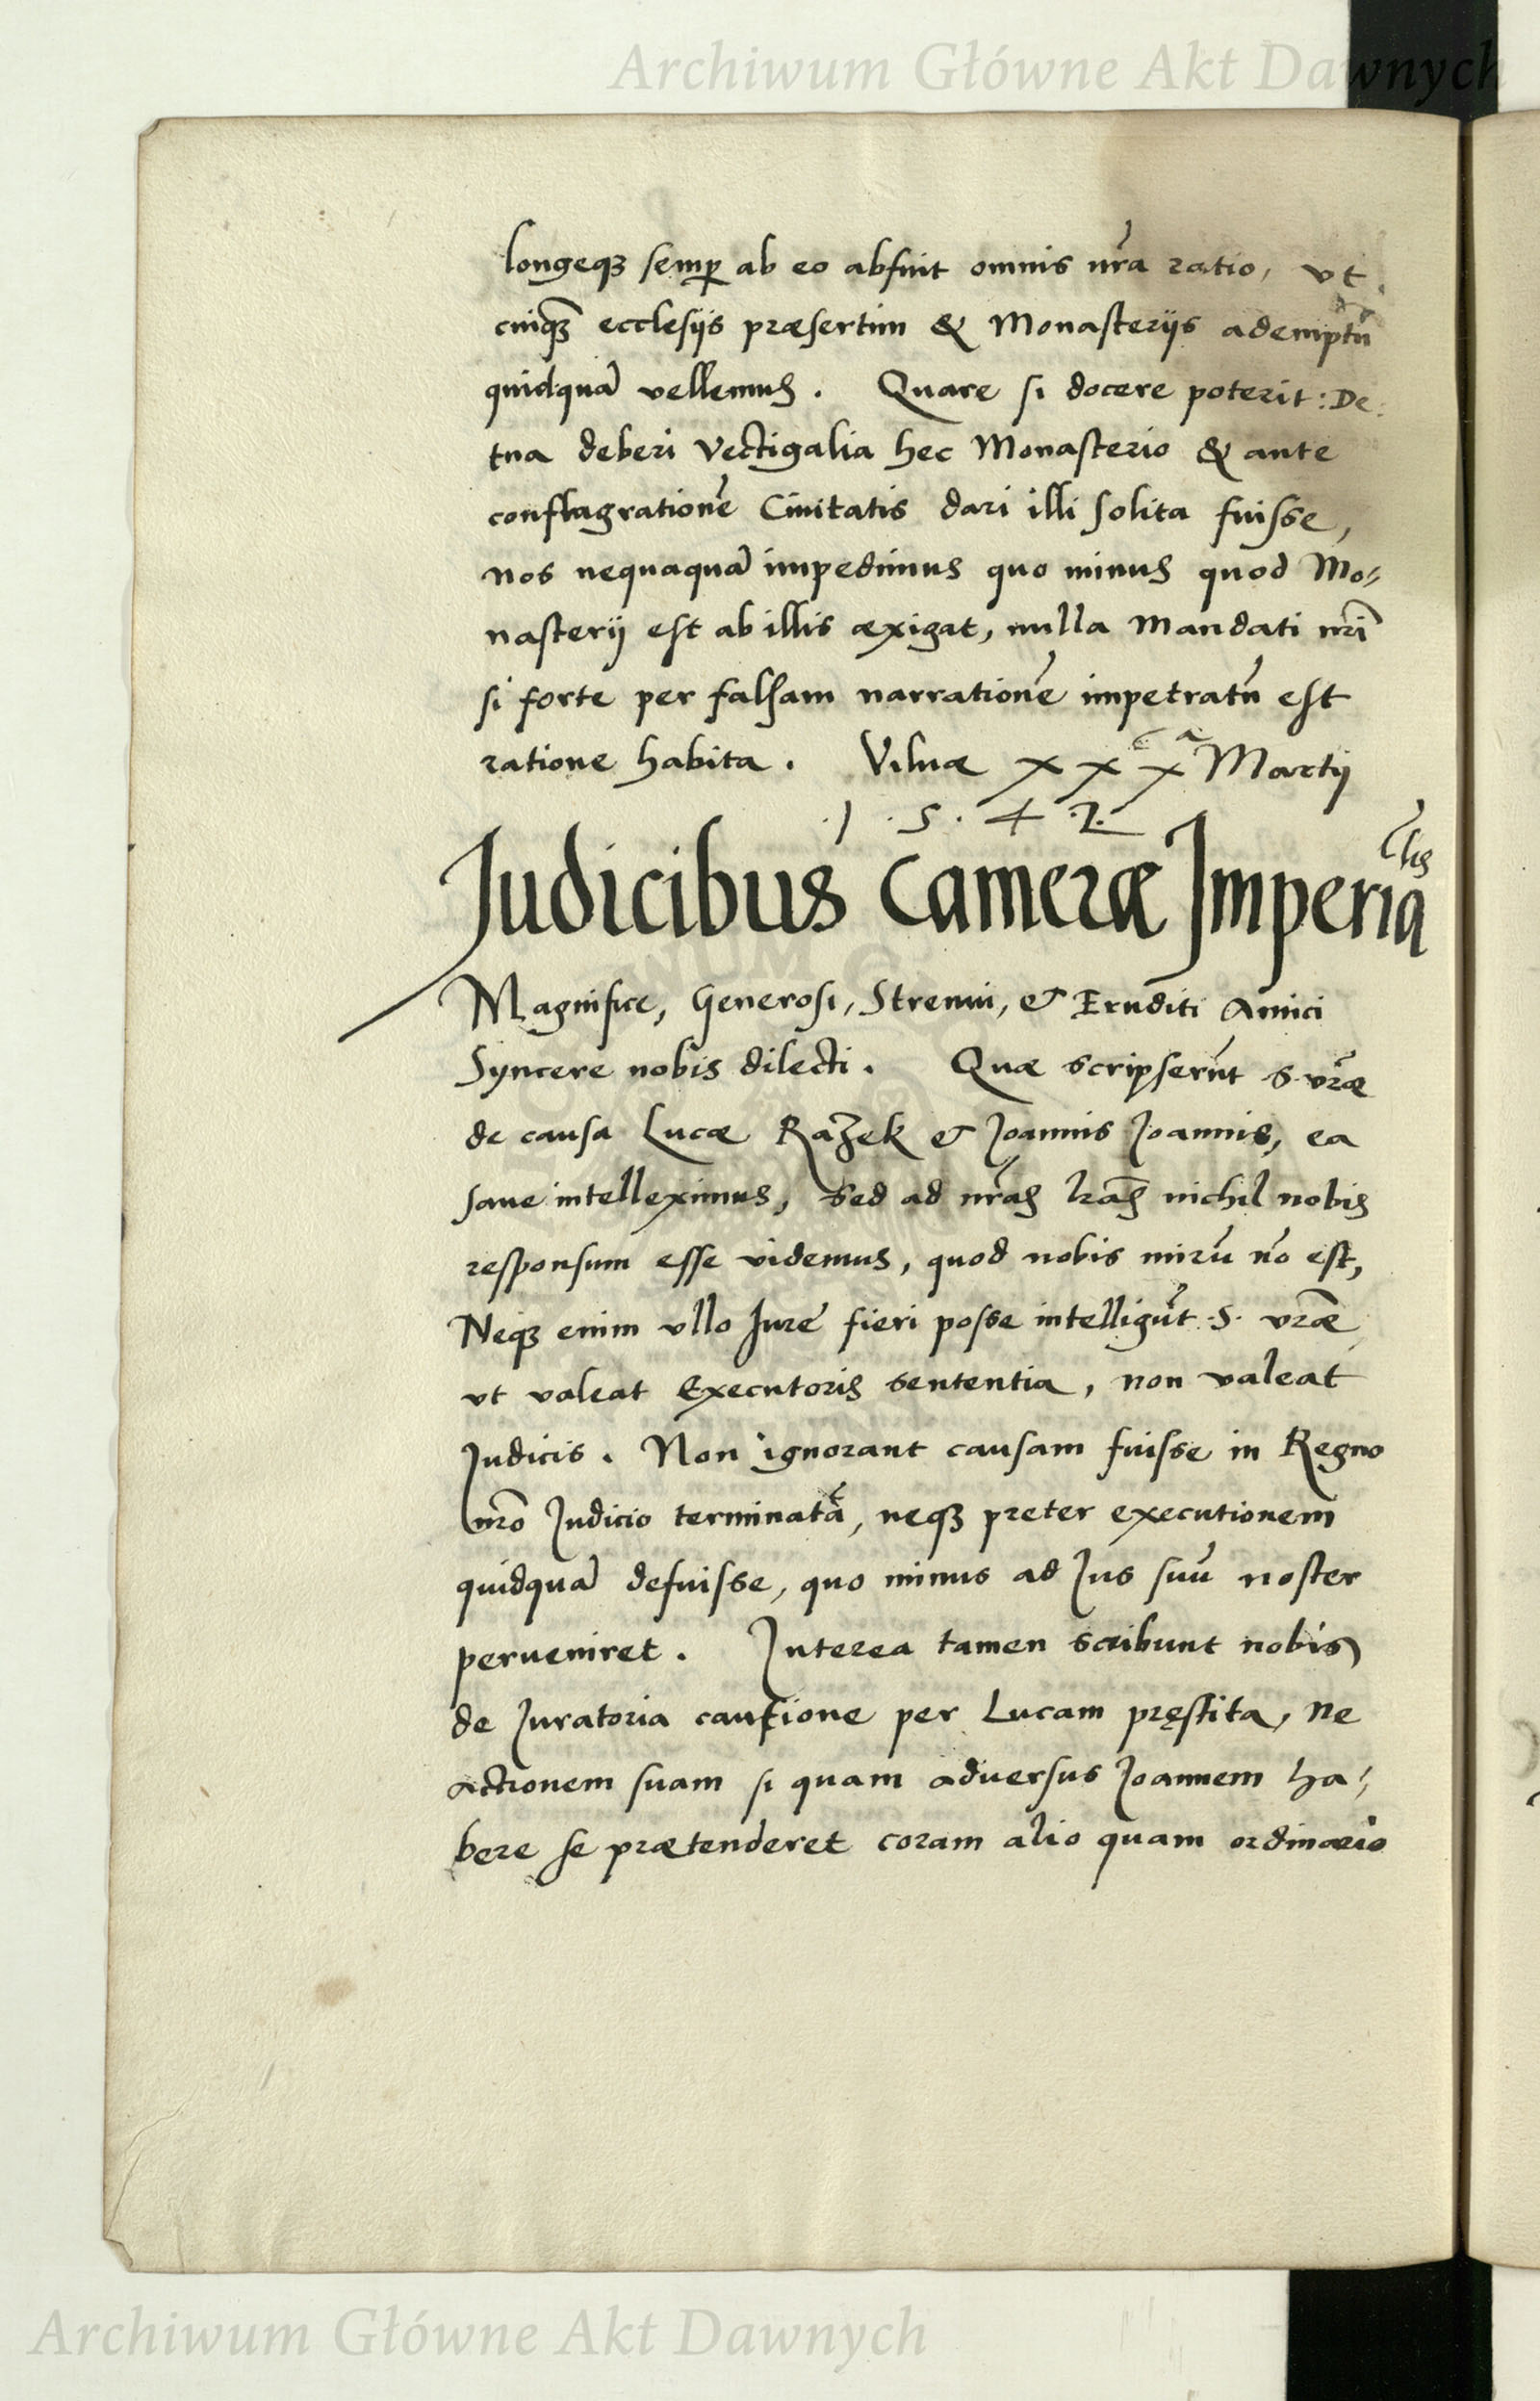 Archiwum Główne Akt Dawnych
longeqȝ semꝑ ab eo abfuit omnis nr̄a ratio, vt
cuiqȝ ecclesijs præsertim & Monasterijs ademptū
quidquā vellemus. Quare si docere poterit: De:
tua deberi Vectigalia hec Monasterio & ante
conflagrationē Ciuitatis dari illi solita fuisse,
nos nequaquā impedimus quo minus quod Mo-
nasterij est ab illis æxigat, nulla Mandati nr̄i
si forte per falsam narrationē impetratū est
ratione habita. Vilnæ xxx Martij
.1.5.4.2.
Judicibus Cameræ Imperialis
Magnifice, Generosi, Strenui, & Eruditi Amici
Syncere nobis dilecti. Quæ scripserūt S. vr̄æ
de causa Lucæ Razek & Joannis Joannis, ea
sane intelleximus, Sed ad nr̄as lr̄as nichil nobis
responsum esse videmus, quod nobis mirū nō est,
Neqȝ enim vllo Jure fieri posse intelligūt .S. vr̄æ
vt valeat Executoris sententia, non valeat
Judicis. Non ignorant causam fuisse in Regno
nr̄o Judicio terminatā, neqȝ preter executionem
quidquā defuisse, quo minus ad Jus suū noster
perueniret. Interea tamen scribunt nobis
de Juratoria cautione per Lucam pręstita, ne
actionem suam si quam aduersus Joannem ha-
bere se prætenderet coram alio quam ordinario
Archiwum Główne Akt Dawnych